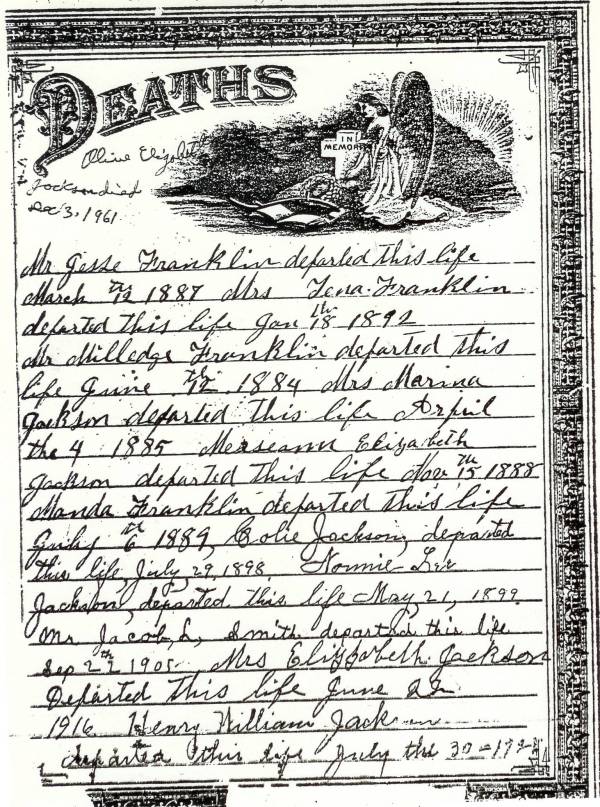 DEATHS
Olive Elizabeth
Jackson died
Dec 3, 1961
IN
MEMORY
Mr Jesse Franklin departed this life
March 12th 1887 Mrs Tena Franklin
departed this life Jan 18th 1892
Mr Milledge Franklin departed this
life June 12th 1884 Mrs Marina
Jackson departed this life Arpil
the 4 1885 Merseann Elizabeth
Jackson departed this life Nov 15th 1888
Manda Franklin departed this life
6th 1889, Colie Jackson, departed
this life, July, 29, 1898 Nonnie Lee
Jackson, departed this life May, 21, 1899.
Mr Jacob, L, Smith departed this life
Sep 2th 1905 Mrs Elizzabeth Jackson
Departed This life June
1916 Henry William Jackson
departed this life July the 30